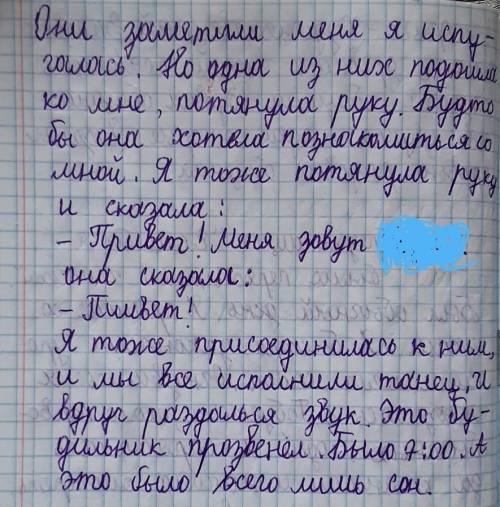 Они заметили меня я испу-
галась. Но одна из них подошла
ко мне, потянула руку. Будто
бы она хотела познакомиться со
мной. Я тоже потянула руку
и сказала:
- Привет! Меня зовут
она сказала:
- Пливет!
Я тоже присоединилась к ним,
и мы все исполнили танец, и
вдруг раздалься звук. Это бу-
дильник прозвенел. Было 7:00. А
это было всего лишь сон.